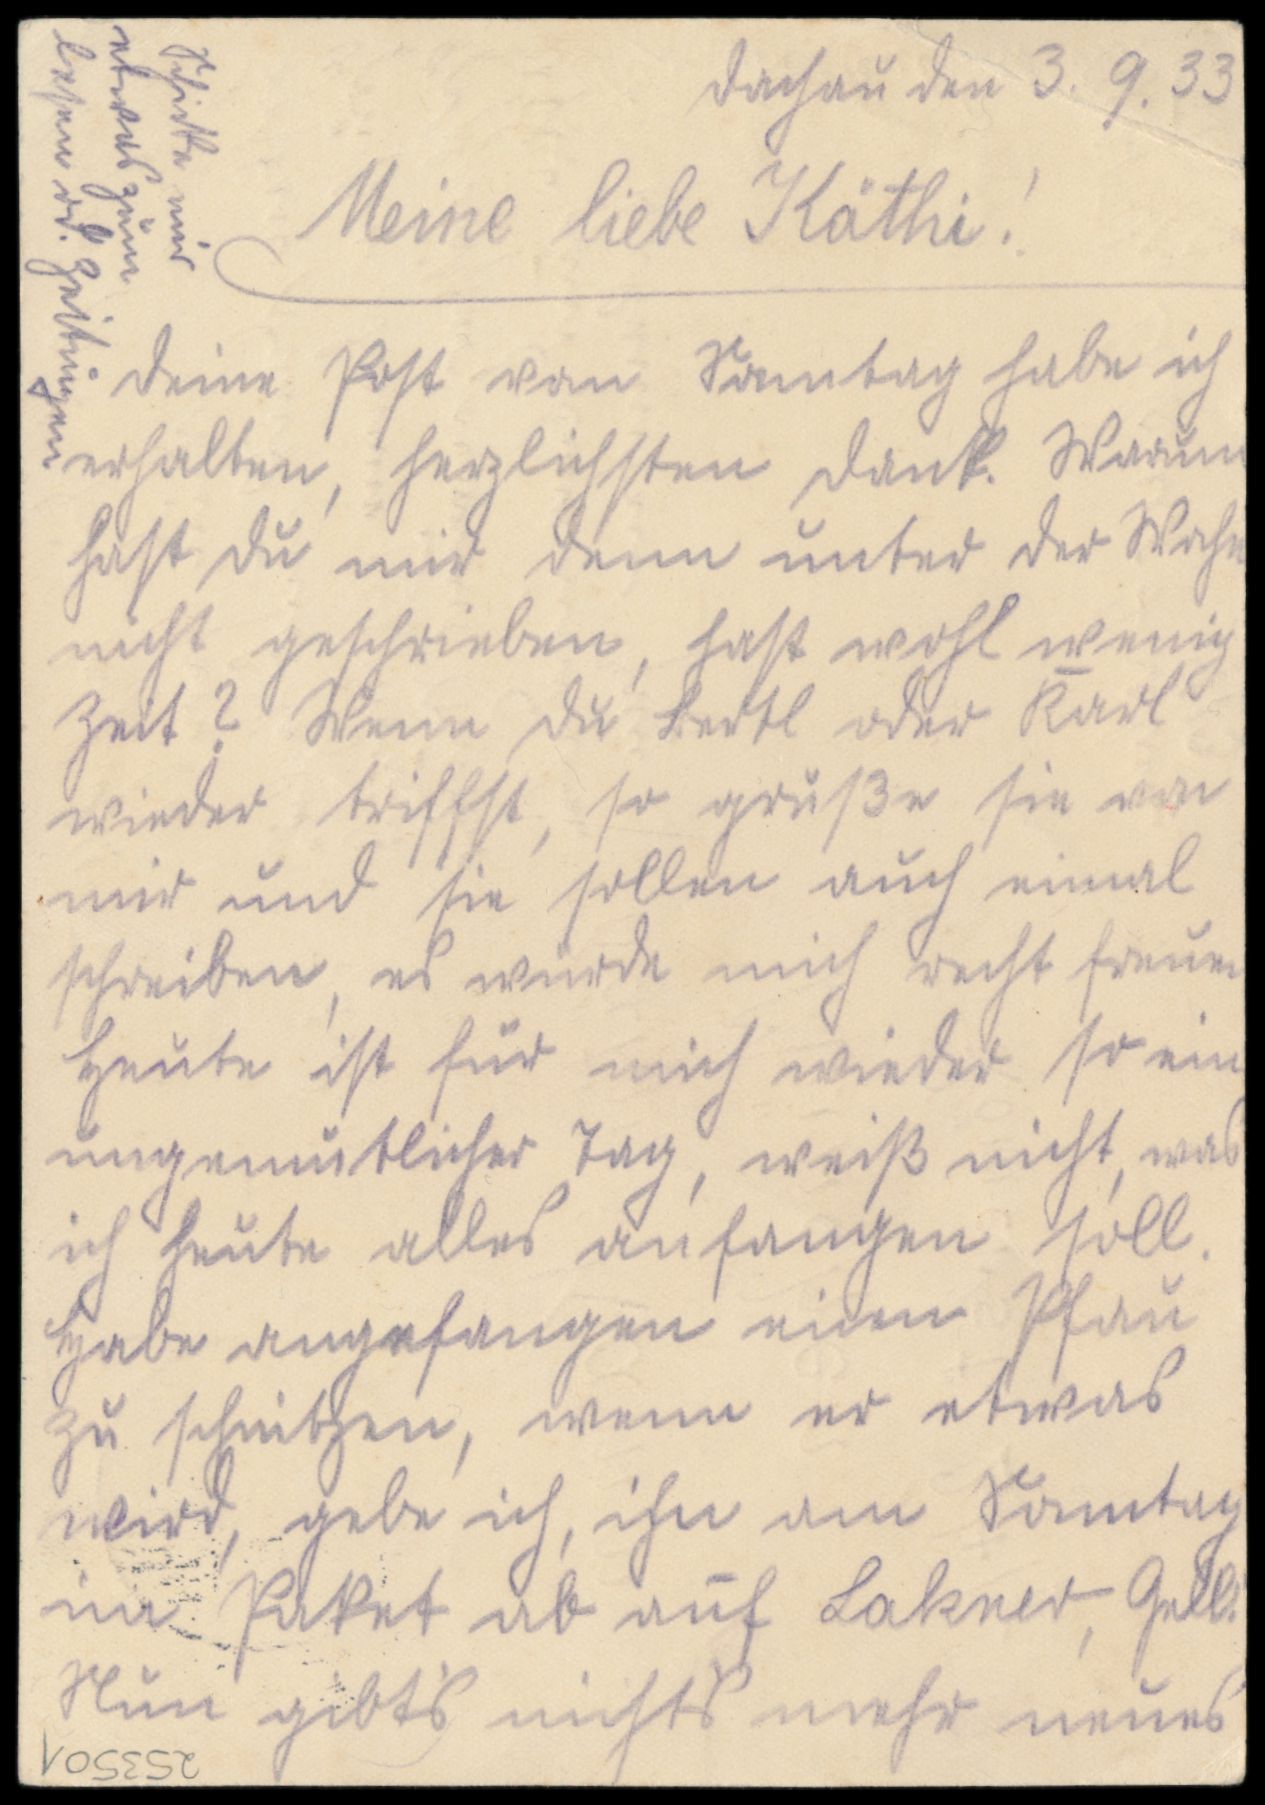 Dachau den 3. 9. 33
Meine liebe Käthi!
Deine Post von Sonntag habe ich
erhalten, herzlichsten Dank. Warum
hast du mir denn unter der Woche
nicht geschrieben, hast wohl wenig
Zeit? Wenn du Bertl oder Karl
wieder triffst, so grüße sie von
mir und sie sollen auch einmal
schreiben, es würde mich recht freuen
Heute ist für mich wieder so ein
ungemütlicher Tag, weiß nicht, was
ich heute alles anfangen soll.
Habe angefangen einen Pfau
zu schnitzen, wenn er etwas
wird, gebe ich, ihn am Sonntag
im Paket ab auf Lakner, Gell!
Nun gibt's nichts mehr neues
Schicke mir
etwas zum
lesen od. Zeitungen
253501